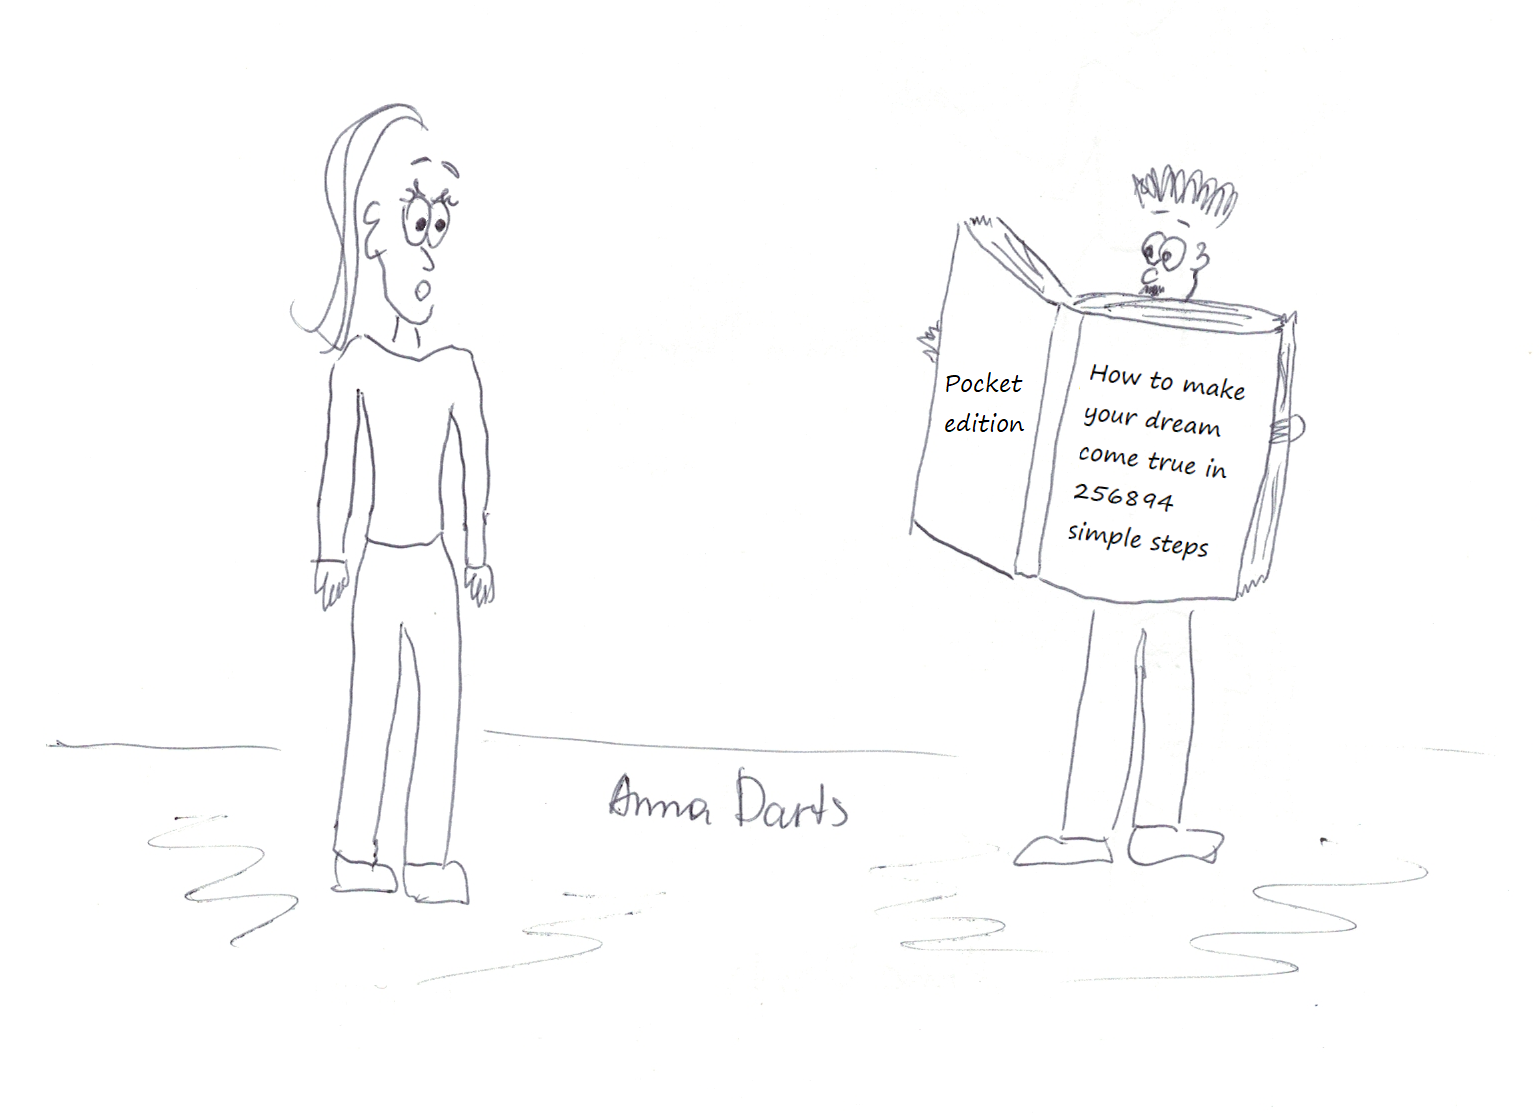 Pocket
edition
How to make
your dream
come true in
256894
simple steps
Anna Darts